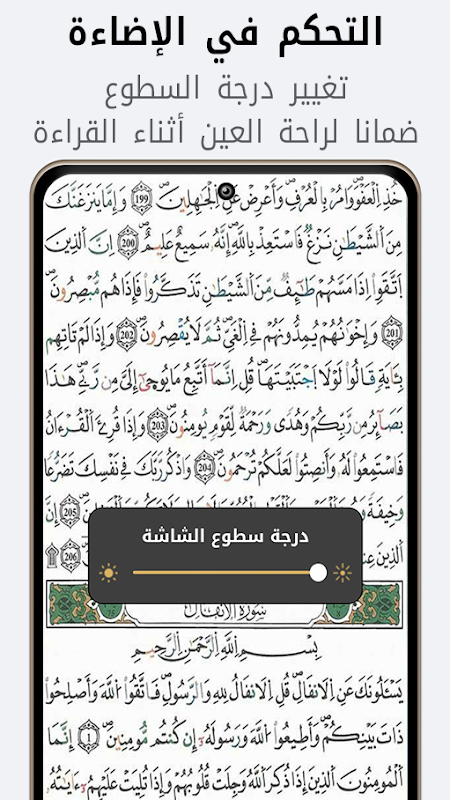 التحكم في الإضاءة
تغيير درجة السطوع
ضمانا لراحة العين أثناء القراءة
خُذِ الْعَفْوَ وَامُرْ بِالْعُرْفِ وَأَعْرِضْ عَنِ الْجَٰهِلِينَ 199 وَإِمَّا يَنزَغَنَّكَ
مِنَ الشَّيْطَٰنِ نَزْغٌ فَاسْتَعِذْ بِاللَّهِ إِنَّهُ سَمِيعٌ عَلِيمٌ 200 إِنَّ الَّذِينَ
اَتَّقَوِاْ اِذَا مَسَّهُمْ طَٰٓئِفٌ مِّنَ الشَّيْطَٰنِ تَذَكَّرُواْ فَإِذَا هُم مُّبْصِرُونَ
201 وَإِخْوَٰنُهُمْ يُمِدُّونَهُمْ فِي الْغَيِّ ثُمَّ لَا يُقْصِرُونَ 202 وَإِذَا لَمْ تَاتِهِم
بِـَٔايَةٍ قَالُواْ لَوْلَا اَجْتَبَيْتَهَا قُلِ اِنَّمَآ أَتَّبِعُ مَا يُوحَىٰٓ إِلَيَّ مِن رَّبِّي هَٰذَا
بَصَآئِرُ مِن رَّبِّكُمْ وَهُدًى وَرَحْمَةٌ لِّقَوْمٍ يُومِنُونَ 203 وَإِذَا قُرِئَ الْقُرْءَانُ
فَاسْتَمِعُواْ لَهُ وَأَنصِتُواْ لَعَلَّكُمْ تُرْحَمُونَ 204 وَاذْكُر رَّبَّكَ فِي نَفْسِكَ تَضَرُّعًا
وَخِيفَةً وَدُونَ 205 إِنَّ
الَّذِينَ عِندَ 206
درجة سطوع الشاشة
سُورَةُ الْأَنفَالِ
بِسْمِ اللَّهِ الرَّحْمَٰنِ الرَّحِيمِ
يَسْـَٔلُونَكَ عَنِ الْأَنفَالِ قُلِ الْأَنفَالُ لِلهِ وَالرَّسُولِ فَاتَّقُواْ اللَّهَ وَأَصْلِحُواْ
ذَاتَ بَيْنِكُمْ وَأَطِيعُواْ اللَّهَ وَرَسُولَهُ إِن كُنتُم مُّومِنِينَ 1 إِنَّمَا
الْمُومِنُونَ الَّذِينَ إِذَا ذُكِرَ اللَّهُ وَجِلَتْ قُلُوبُهُمْ وَإِذَا تُلِيَتْ عَلَيْهِمُۥٓ ءَايَٰتُهُ